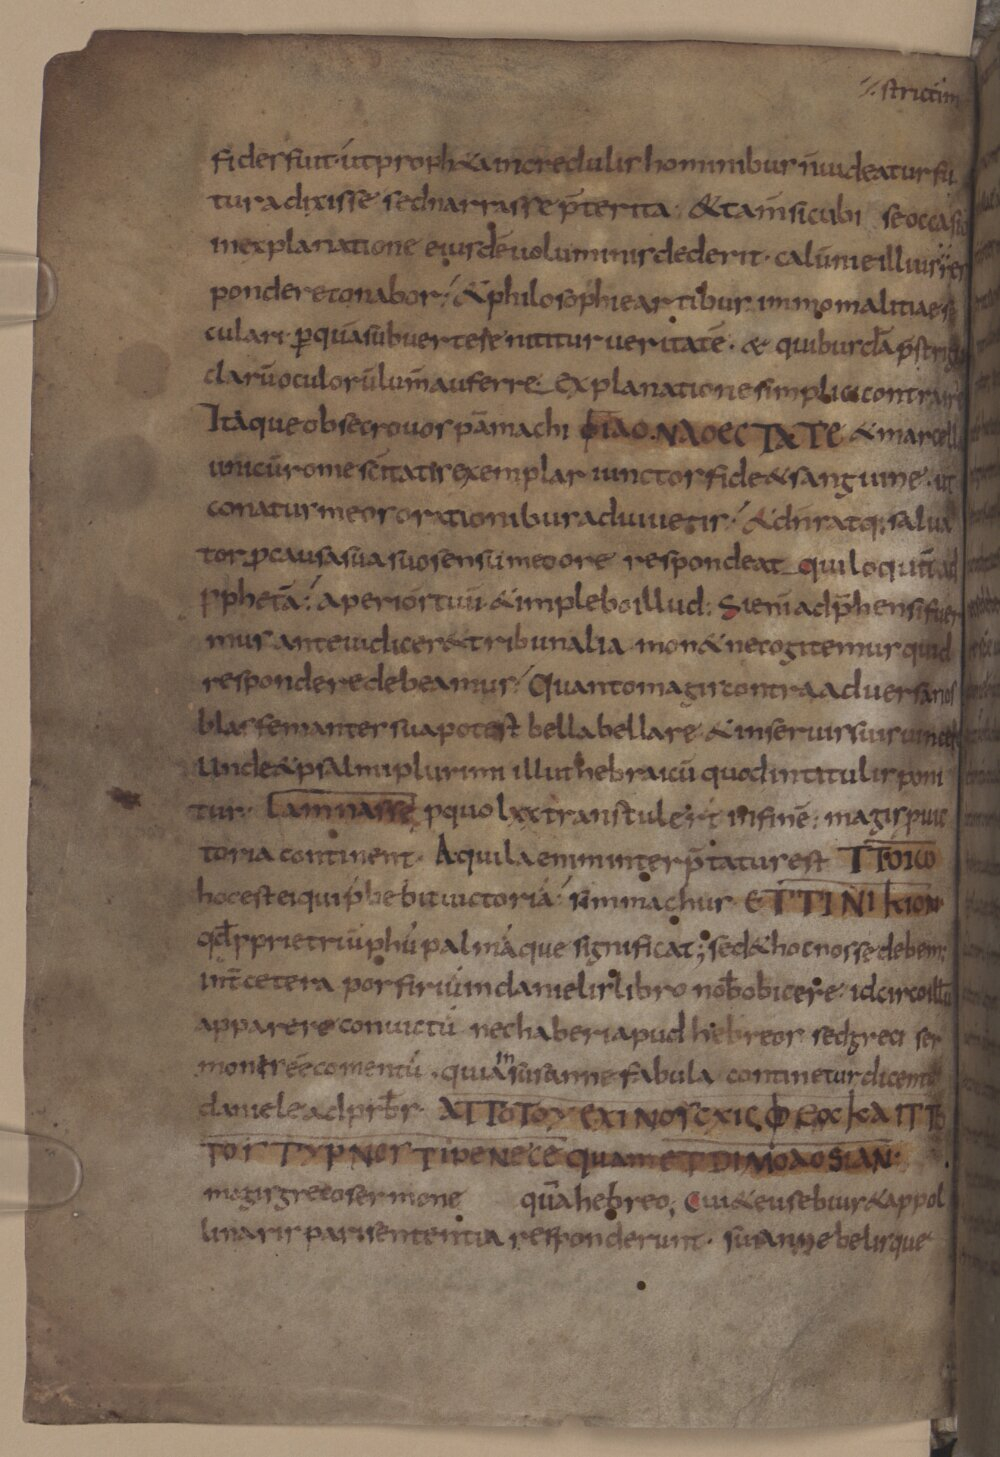 ⁒ strictim
fides fuit· ut proph&a incredulis hominibus n̄ uideatur fu
tura dixisse sed narrasse p̄terita· &tam̄ sicubi se occasio
in explanatione eiusdē uoluminis dederit· calūnie illius res
pondere conabor; & philosophie artibus immo malitiae se
culari ꝑ quā subuertere nititur ueritatē· & quibusdā p̄strigiis
clarū oculorū lum̄ auferre explanatione simplici contraire
Itaque obsecro uos pāmachi ΦΙΛΟ.ΝΑΟΕCΤΑΤΕ & marcella
unicū rome sc̄itatis exemplar iunctos fide & sanguine· ut
conatus meos orationibus adiuuetis; & dn̄s atq; salua
tor ꝓ causa sua suo sensu meo ore respondeat qui loquit̄ ad
ꝓphetā; aperi os tuū & implebo illud; Si enī adp̄hensi fueri
mus ante iudices & tribunalia mon& ne cogitemus quid
respondere debeamus; Quanto magis contra aduersarios
blasfemantes sua potest bella bellare & in seruis suis uincere
Unde & psalmi plurimi illut hebraicū quod in titulis poni
tur· Lamnasse p quo lxx transtuler̄t in finē; magis p uic
toria continent· Aquila enim interp̄tatur est ΤΤΟΙω
hoc est ei qui p̄bebit uictoriā; simmachus ΕΤΤΙΝΙΚΙΟΝ
qd̄ ꝓprie triūphū palmāque significat; sed & hoc nosse debem;
int̄ cetera porfiriū in danielis libro nob̄ obicere· idcirco illū
apparere conuictū nec haberi apud hebreos sed greci ser
monis eē comentū· quia in susanne fabula continetur dicente
daniele ad prb̄r· ΑΤΤΟΤΟΥ ΕΧΙΝΟΣ CΧΙC ΦΕΟC ΚΑΙΤΤΟ
ΤΟΙΣ ΤΥΡΝΟΣ ΤΙΡΕΝΕCΕ quam ΕΤDΙΜΟΛΟSΙΑΝ·
magis greco sermone quā hebreo; Cui & eusebius & appol
linaris pari sententia responderunt· susanne belisque